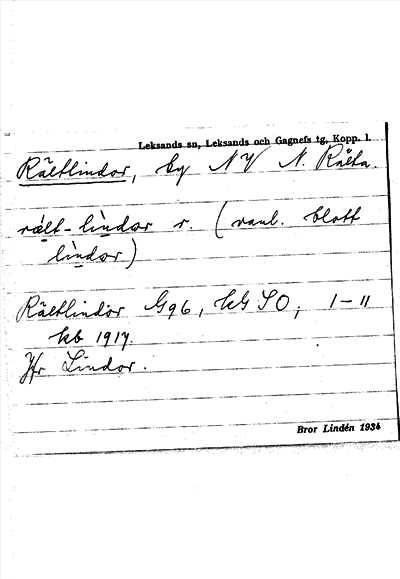 Leksands sn, Leksands och Gagnefs tg, Kopp. l.
Rältlindor, by NV N. Rälta.
rælt-lindor r. (vanl. blott
lindor)
Rältlindor Gg6, hG SO; 1-11
kb 1917.
Jfr Lindor.
Bror Lindén 1934